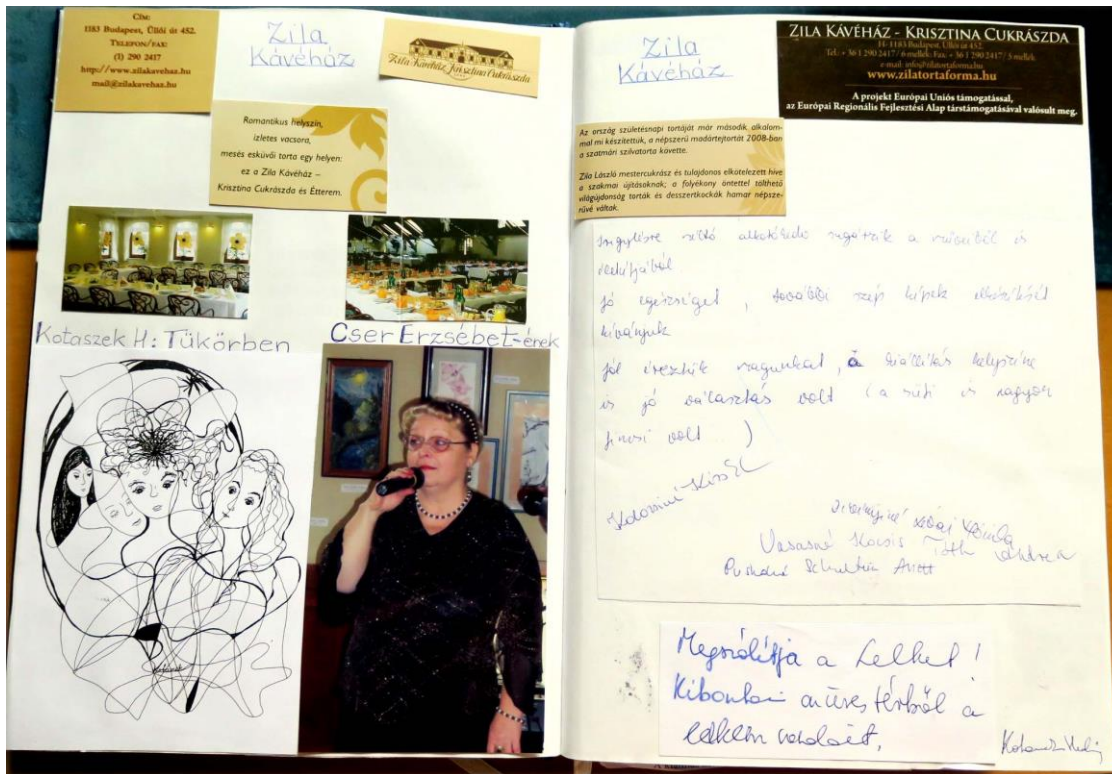 Cím:
1183 Budapest, Üllői út 452.
Telefon/fax:
(1) 290 2417
http://www.zilakavehaz.hu
mail@zilakavehaz.hu
Zila
Kávéház
Zila Kávéház Krisztina Cukrászda
Romantikus helyszín,
ízletes vacsora,
mesés esküvői torta egy helyen:
ez a Zila Kávéház –
Krisztina Cukrászda és Étterem.
Kotaszek H: Tükörben
Cser Erzsébet-ének
Zila
Kávéház
Zila Kávéház - Krisztina Cukrászda
H- 1183 Budapest, Üllői út 452.
Tel.: + 36 1 290 2417/ 6 mellék; Fax: + 36 1 290 2417/ 5 mellék
e-mail: info@zilatortaforma.hu
www.zilatortaforma.hu
A projekt Európai Uniós támogatással,
az Európai Regionális Fejlesztési Alap társtámogatásával valósult meg.
Az ország születésnapi tortáját már második alkalom-
mal mi készítettük, a népszerű madártejtortát 2008-ban
a szatmári szilvatorta követte.
Zila László mestercukrász és tulajdonos elkötelezett híve
a szakmai újításoknak; a folyékony öntettel tölthető
világújdonság torták és desszertkockák hamar népsze-
rűvé váltak.
sugárzik a műveiből is
jó egészséget, további szép képek elkészítését
kívánjuk
jól éreztük magunkat, a kiállítás helyszíne
is jó választás volt (a süti is nagyon
finom volt)
Vasasné Kocsis Tóth Andrea
Megszólítja a Lelket!
Kibontani művészetéből a